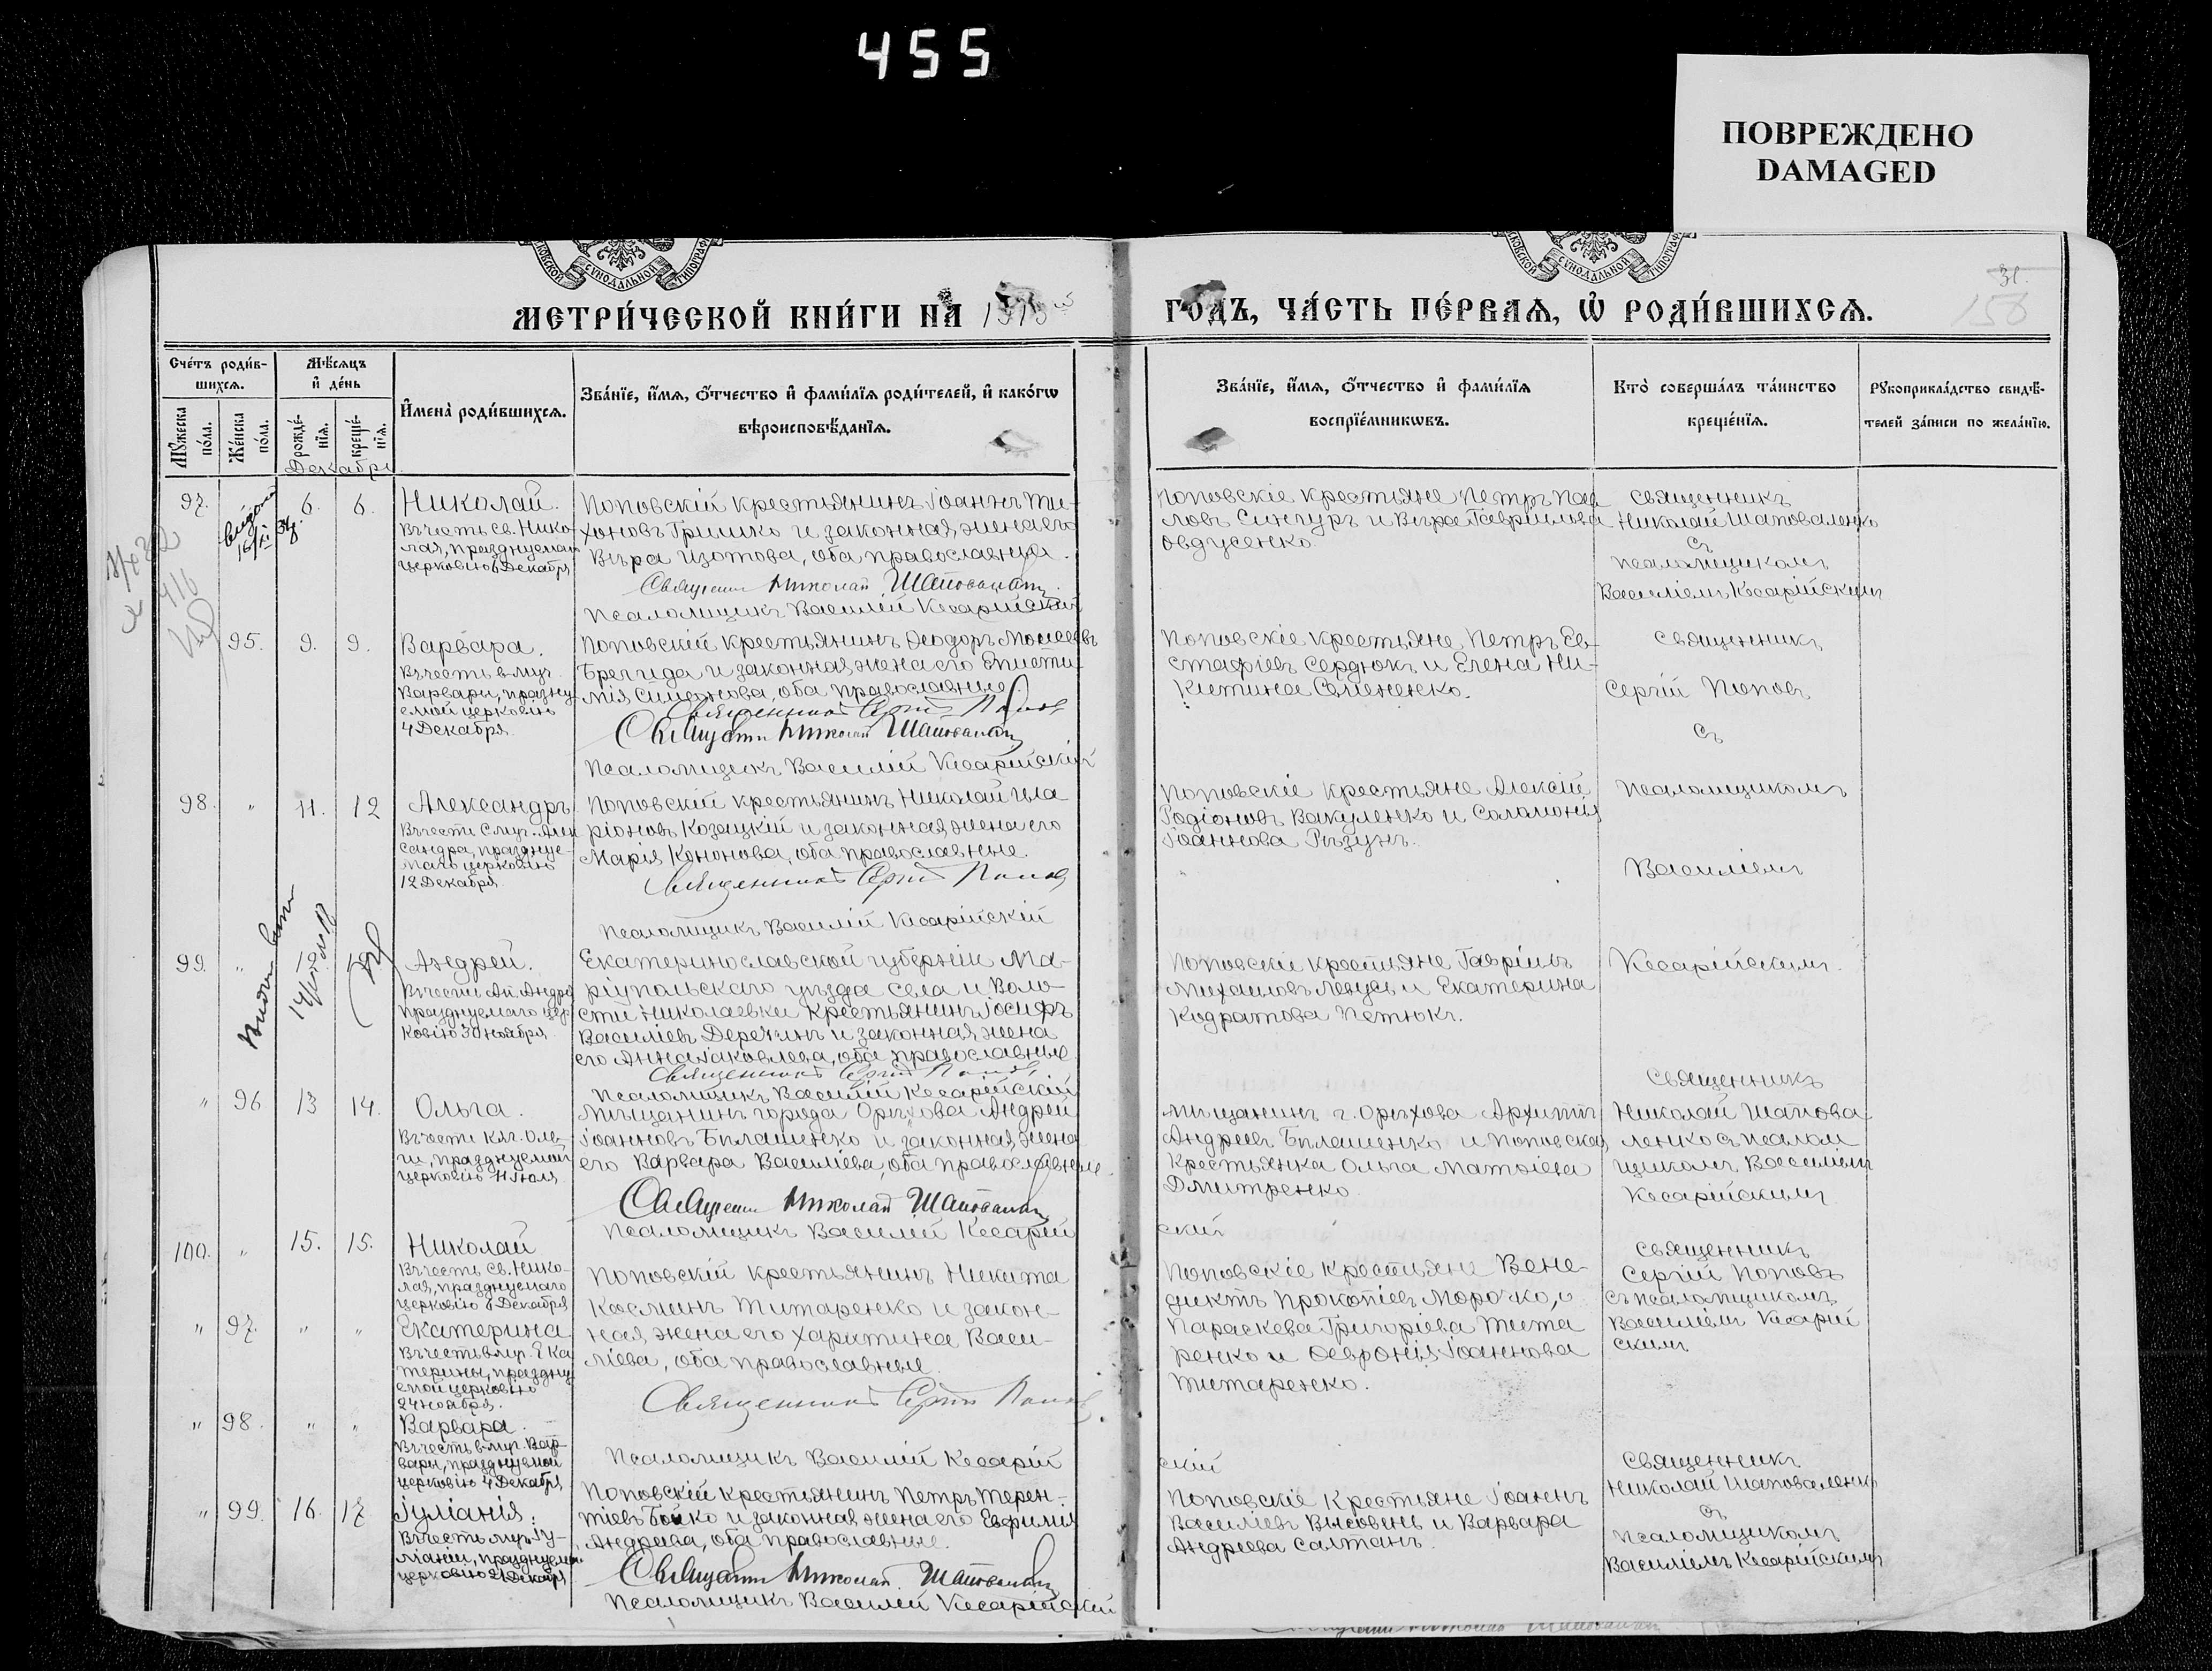 455
ПОВРЕЖДЕНО
DAMAGED
СУНОДАЛЬНОЙ
СУНОДАЛЬНОЙ
31.
158
МЕТРИ́ЧЕСКОЙ КНИ́ГИ НА̀ 1913
ГОДЪ, ЧА́СТЬ ПЕ́РВАЯ, Ѡ҆ РОДИ́ВШИХСЯ.
Сче́тъ роди́в-
шихся.
Мѣ́сяцъ
и҆ де́нь
Мꙋ́жеска
по́ла.
Же́нска
по́ла.
рожде́-
нїя.
креще́-
нїя.
И҆мена̀ роди́вшихся.
Зва́нїе, и҆́мя, ѻ҆́тчество и҆ фами́лїя роди́телей, и҆ како́гѡ
вѣроисповѣ́данїя.
Зва́нїе, и҆́мя, ѻ҆́тчество и҆ фами́лїя
воспрїе́мникѡвъ.
Кто̀ соверша́лъ та́инство
креще́нїя.
Рꙋкоприкла́дство свидѣ́-
телей за́писи по жела́нїю.
Декабрь
97.
6. 6.
Николай.
Въ честь Св. Нико-
лая, празднуемаго
церковію 6 Декабря
Поповскій крестьянинъ Іоаннъ Ти-
хоновъ Гришко и законная жена его
Вѣра Изотова, оба православные.
Священникъ Николай Шаповаленко
Псаломщикъ Василій Кесарійскій
Поповскіе крестьяне Петръ Пав
ловъ Сингуръ и Вѣра Гаврилова
Овдусенко.
Священникъ
Николай Шаповаленко
съ
псаломщикомъ
Василіемъ Кесарійскимъ
95. 9. 9.
Варвара.
Въ честь в-муч.
Варвары, празну-
емой церковію
4 Декабря.
Поповскій крестьянинъ Ѳеодоръ Моисеевъ
Брегида и законная жена его Еписти-
мія Симонова, оба православные.
Священникъ Сергій Поповъ
Священникъ Николай Шаповаленко
Псаломщикъ Василій Кесарійскій
Поповскіе крестьяне Петръ Ев-
стафіевъ Сердюкъ и Елена Ни-
китина Семененко.
Священникъ
Сергій Поповъ
съ
98. " 11. 12
Александръ
Въ честь С муч. Алек
сандра, празднуе-
маго церковію
12 Декабря.
Поповскій крестьянинъ Николай Ила
ріоновъ Козацкій и законная жена его
Марія Кононова, оба православные.
Священникъ Сергій Поповъ
Псаломщикъ Василій Кесарійскій
Поповскіе крестьяне Алексій
Родіоновъ Вакуленко и Соломонія
Іоаннова Рѣзунъ.
псаломщикомъ
Василіемъ
99. "
Андрей.
Въ честь Ап. Андрея
Празднуемаго цер-
ковію 30 Ноября.
Екатеринославской губерніи Ма-
ріупольскаго уѣзда села и воло-
сти Николаевки крестьянинъ Іосифъ
Василіевъ Деречинъ и законная жена
его Анна Іаковлева, оба православные.
Священникъ Сергій Поповъ
Псаломщикъ Василій Кесарійскій
Поповскіе крестьяне Гавріилъ
Михаиловъ Левусь и Екатерина
Кодратова Петюкъ.
Кесарійскимъ.
" 96 13 14.
Ольга.
Въ честь кн. Оль-
ги, празднуемой
церковію 11 Іюля.
Мѣщанинъ города Орѣхова Андрей
Іоанновъ Билашенко и законная жена
его Варвара Василіева, оба православные.
Священникъ Николай Шаповаленко
Псаломщикъ Василій Кесарій
скій
Мѣщанинъ г. Орѣхова Архиппъ
Андреевъ Билашенко и Поповская
крестьянка Ольга Матѳіева
Дмитренко.
Священникъ
Николай Шапова-
ленко съ псалом
щикомъ Василіемъ
Кесарійскимъ.
100. " 15. 15.
Николай
Въ честь Св. Нико-
лая, празднуемаго
церковію 6 Декабря
Поповскій крестьянинъ Никита
Косминъ Титаренко и закон-
ная жена его Харитина Васи-
ліева, оба православные.
Священникъ Сергій Поповъ
Псаломщикъ Василій Кесарій
скій
Поповскіе крестьяне Вене-
диктъ Прокопіевъ Морочко, и
Параскева Григоріева Тита
ренко и Ѳеѵронія Іоаннова
Титаренко.
Священникъ
Сергій Поповъ
съ псаломщикомъ
Василіемъ Кесарій
скимъ
" 97. " "
Екатерина
Въ честь в-муч. Ека
терины, праздну-
емой церковію
24 Ноября.
" 98. " "
Варвара.
Въ честь в-муч. Вар-
вары, празднуемой
церковію 4 Декабря
" 99. 16. 17
Іуліанія.
Въ честь муч. Іу-
ліаніи, празднуемой
церковію 21 Декабря
Поповскій крестьянинъ Петръ Терен-
тіевъ Бойко и законная жена его Евфимія
Андреева, оба православные.
Священникъ Николай Шаповаленко
Псаломщикъ Василій Кесарійскій
Поповскіе крестьяне Іоаннъ
Василіевъ Высовень и Варвара
Андреева Салтанъ.
Священникъ
Николай Шаповаленко
съ
псаломщикомъ
Василіемъ Кесарійскимъ